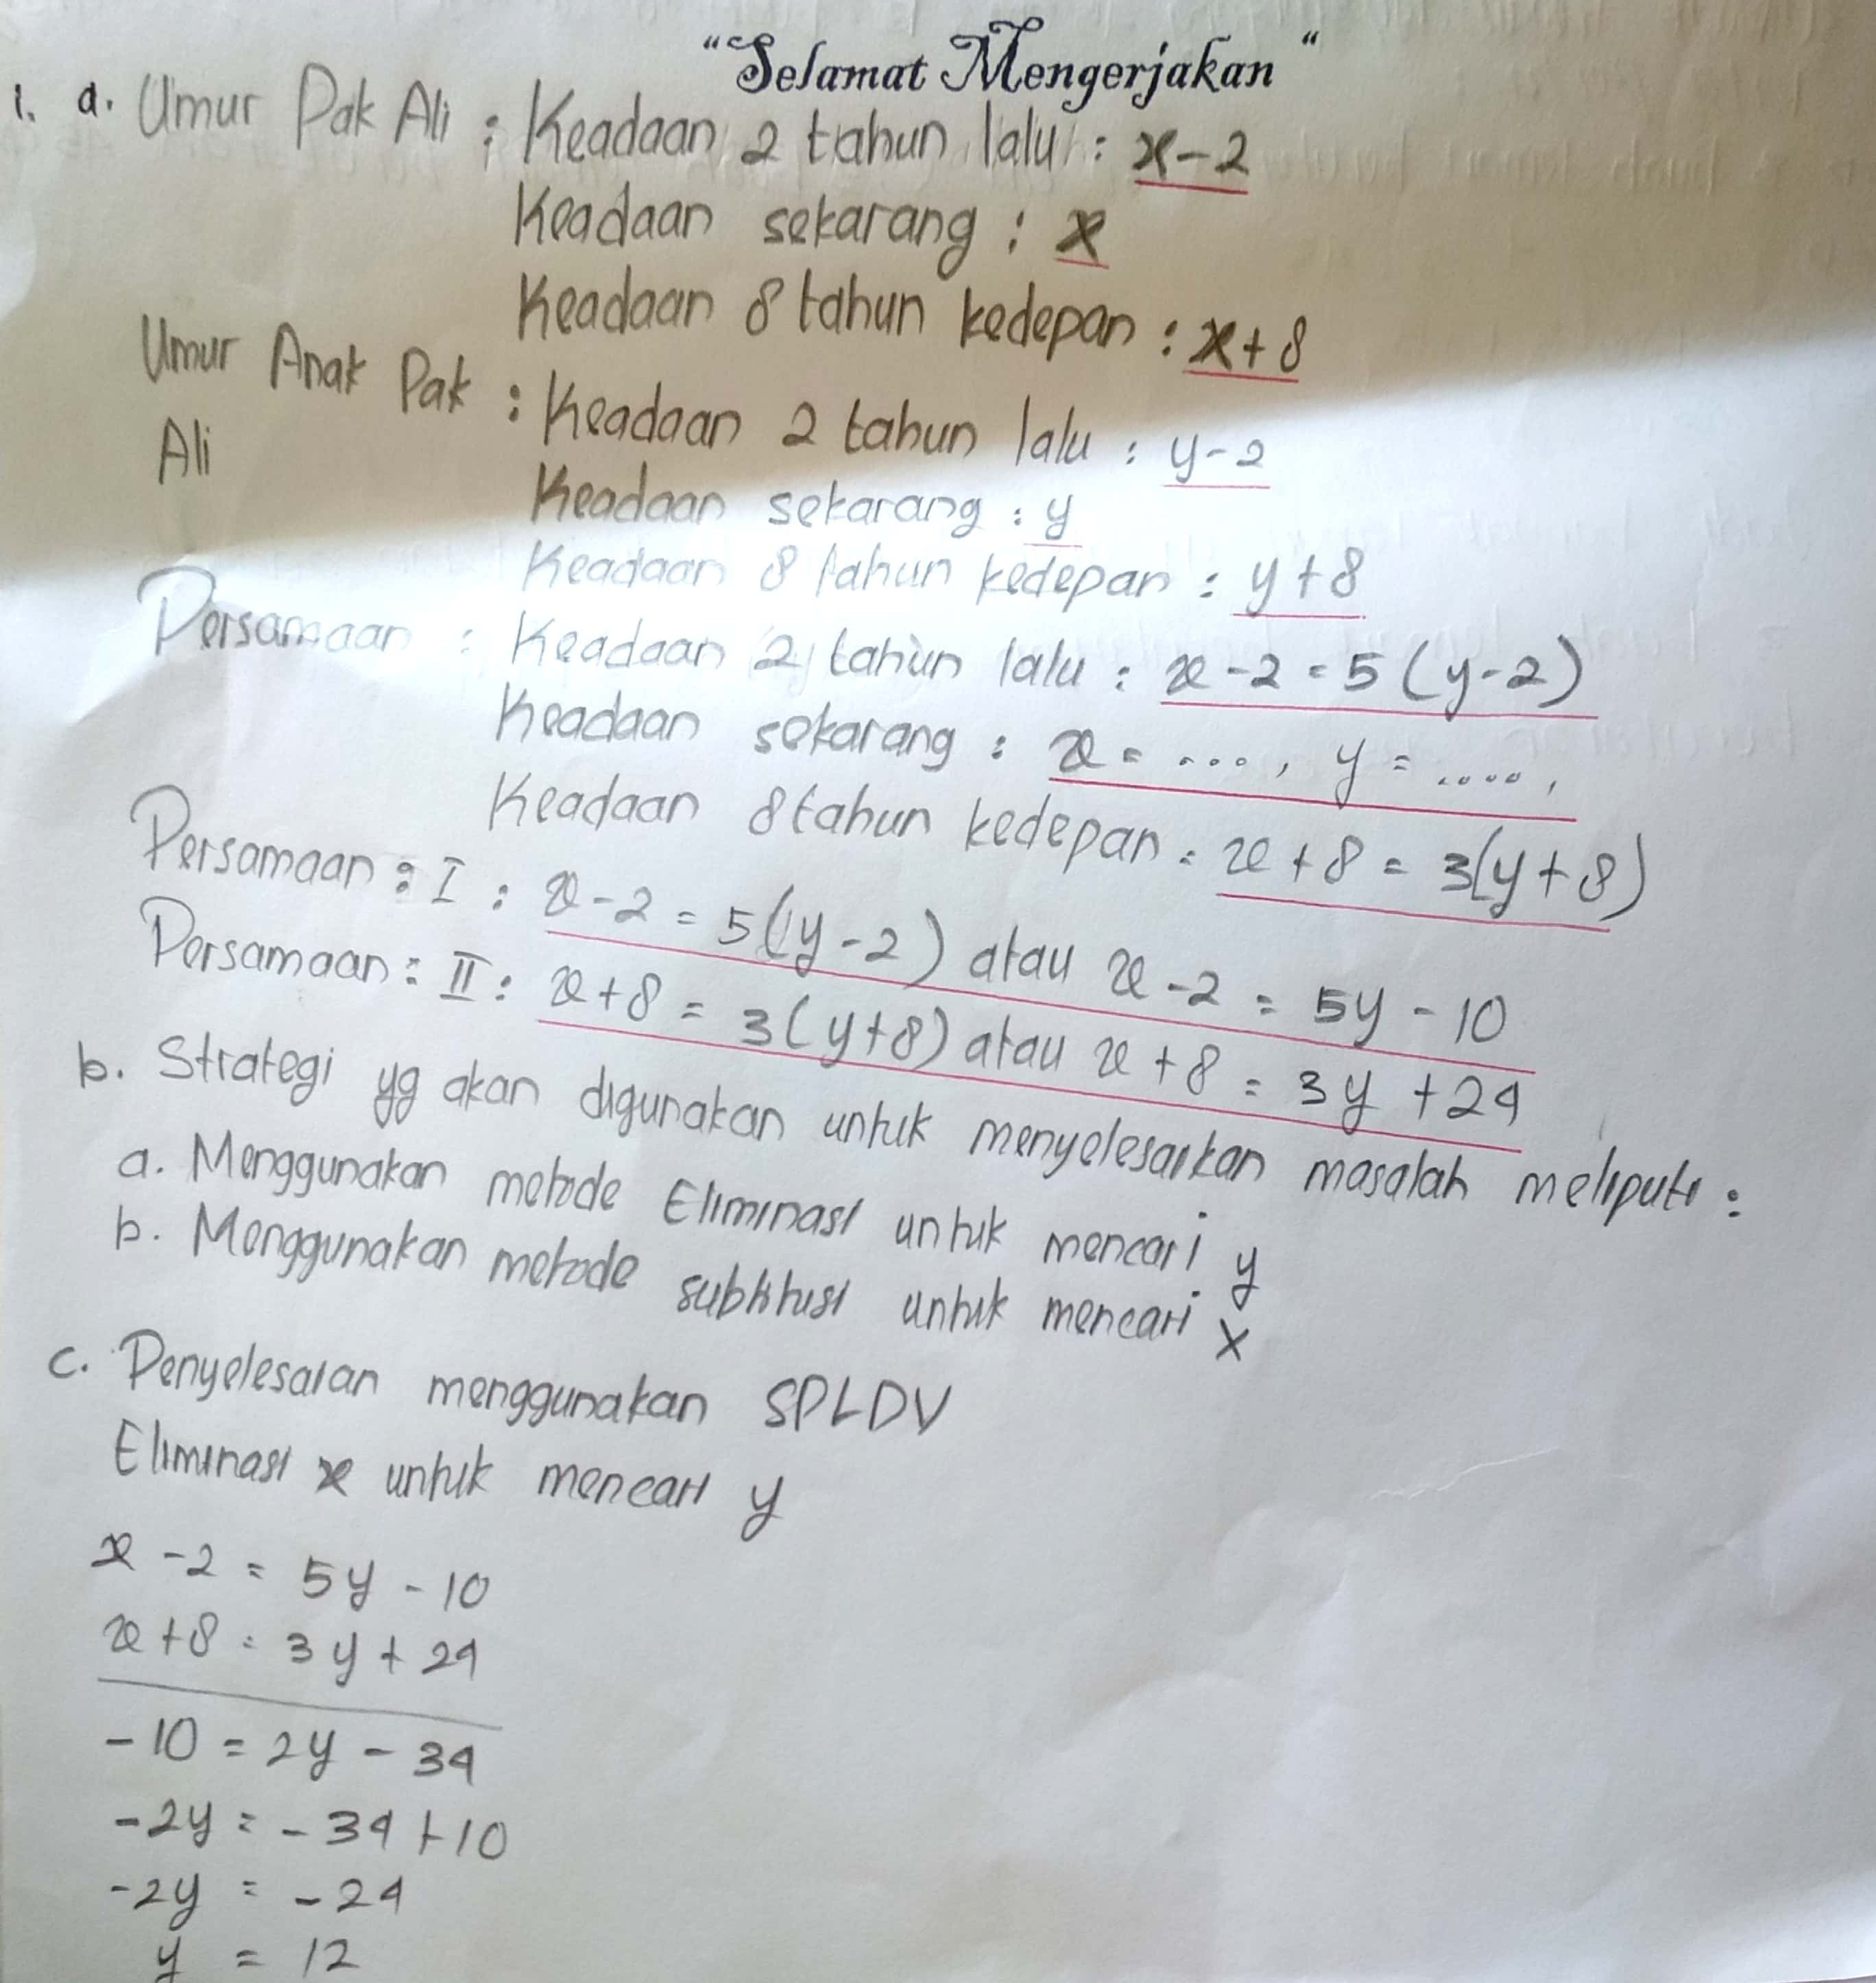 "Selamat Mengerjakan"
1. a. Umur Pak Ali : Keadaan 2 tahun lalu : x-2
Keadaan sekarang : x
Keadaan 8 tahun kedepan : x+8
Umur Anak Pak Ali : Keadaan 2 tahun lalu : y-2
Keadaan sekarang : y
Keadaan 8 tahun kedepan : y+8
Persamaan : Keadaan 2 tahun lalu : x-2 = 5(y-2)
Keadaan sekarang : x = ..., y = ....,
Keadaan 8 tahun kedepan : x+8 = 3(y+8)
Persamaan : I : x-2 = 5(y-2) atau x-2 = 5y - 10
Persamaan : II : x+8 = 3(y+8) atau x+8 = 3y +24
b. Strategi yg akan digunakan untuk menyelesaikan masalah meliputi :
a. Menggunakan metode Eliminasi untuk mencari y
b. Menggunakan metode subtitusi untuk mencari x
c. Penyelesaian menggunakan SPLDV
Eliminasi x untuk mencari y
x - 2 = 5y - 10
x + 8 = 3y + 24
- 10 = 2y - 34
-2y = - 34 + 10
-2y = -24
y = 12